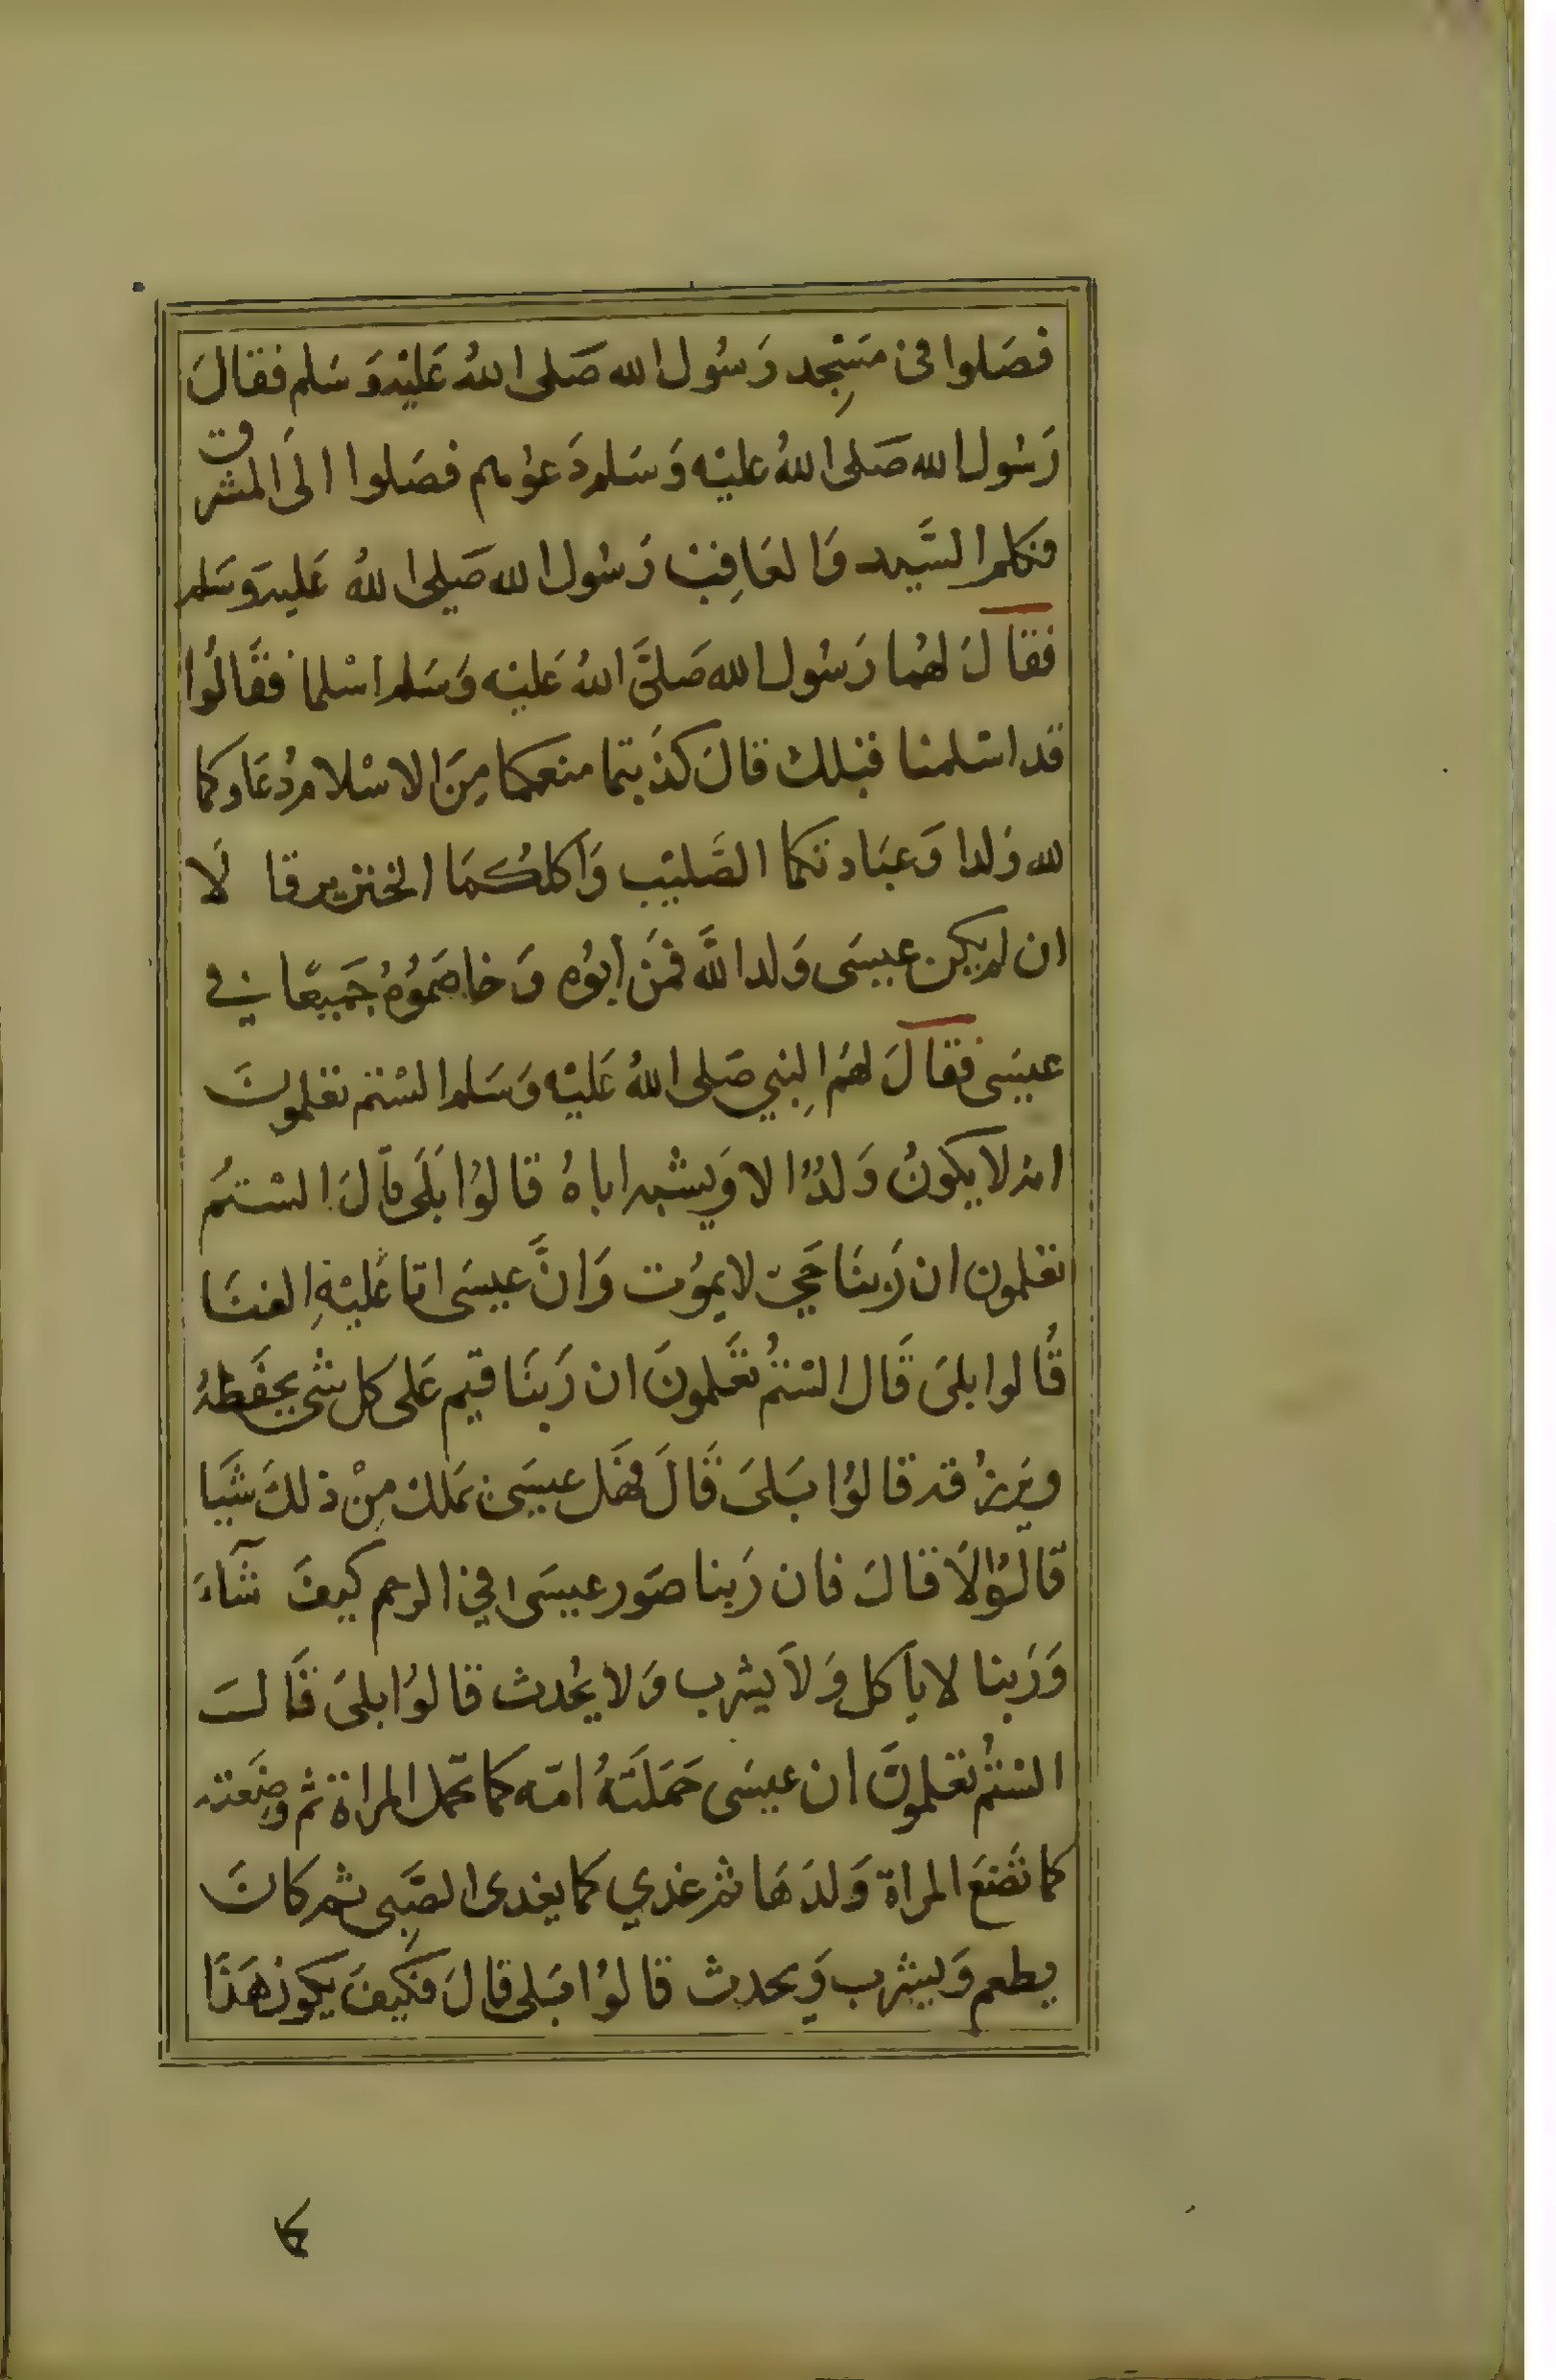 فصَلوا في مَسْجِد رَسُول الله صَلى اللهُ عَليْه وَ سَلم فقالَ
رَسُول الله صَلى اللهُ عليْه وَ سَلم دَعوُهم فصَلوا الىَ المشرق
فكلم السَّيد وَالعَاقِبْ رَسُول الله صَلى اللهُ عَليه وَسَلم
فقَالَ لهُما رَسُول الله صَلىَّ اللهُ عَليْه وَسَلم اسْلما فقَالوُا
قد اسْلمنا قبْلك قالَ كذَبتما منعكما مِنَ الاسْلام دُعَاوكما
لله وَلدا وَعبَادتكما الصَّليْب وَاكلكُمَا الخنزير قا لَا
ان لم يكن عيسَى وَلد اللَّه فمَن اَبوُه وَخاصَموُهُ جَميعًا في
عيسَى فقَالَ لهَم النبي صَلى اللهُ عَليْه وَسَلم السْتم تعْلمونَ
انه لا يكونُ وَلدٌ الا وَيشبه اباهُ قالوُا بَلىَ قاَلَ السْتُم
تعلمون ان رَبنَا حَيّ لا يموُت وَانَّ عيسَى اتا عَليْهِ الفنَا
قَالوا بلىَ قَال السْتمُ تعَلمونَ ان رَبنَا قيم عَلى كل شى يحفَظهُ
ويَرزُقه قالوُا بَلىَ قَالَ فهَل عيسَى يَملك مِنْ ذلكَ شَيَا
قالوُا لاَ قالَ فان رَبنا صَور عيسَى في الرحم كيفَ شَآءَ
وَرَبنا لا يأكل وَلاَ يشرب وَلا يُحدث قالوُا بلىَ قَالَ
السْتمُ تعَلمونَ ان عيسَى حَمَلَتهُ امّه كما تحمل المراة ثم وضَعته
كما تَضَع المراة وَلدَهَا ثم غذي كما يغدى الصَّبى ثم كانَ
يطعم وَيشرب وَيحدث قالوُا بَلى قالَ فكَيفَ يكون هَذَا
كا